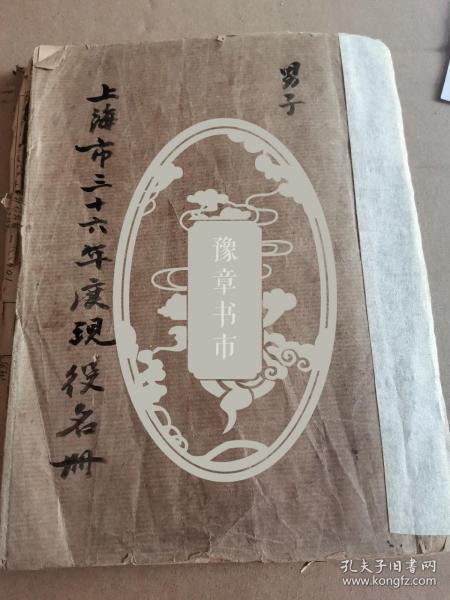 男子
上海市三十六年度現役名册
豫章书市
孔夫子旧书网
www.kongfz.com